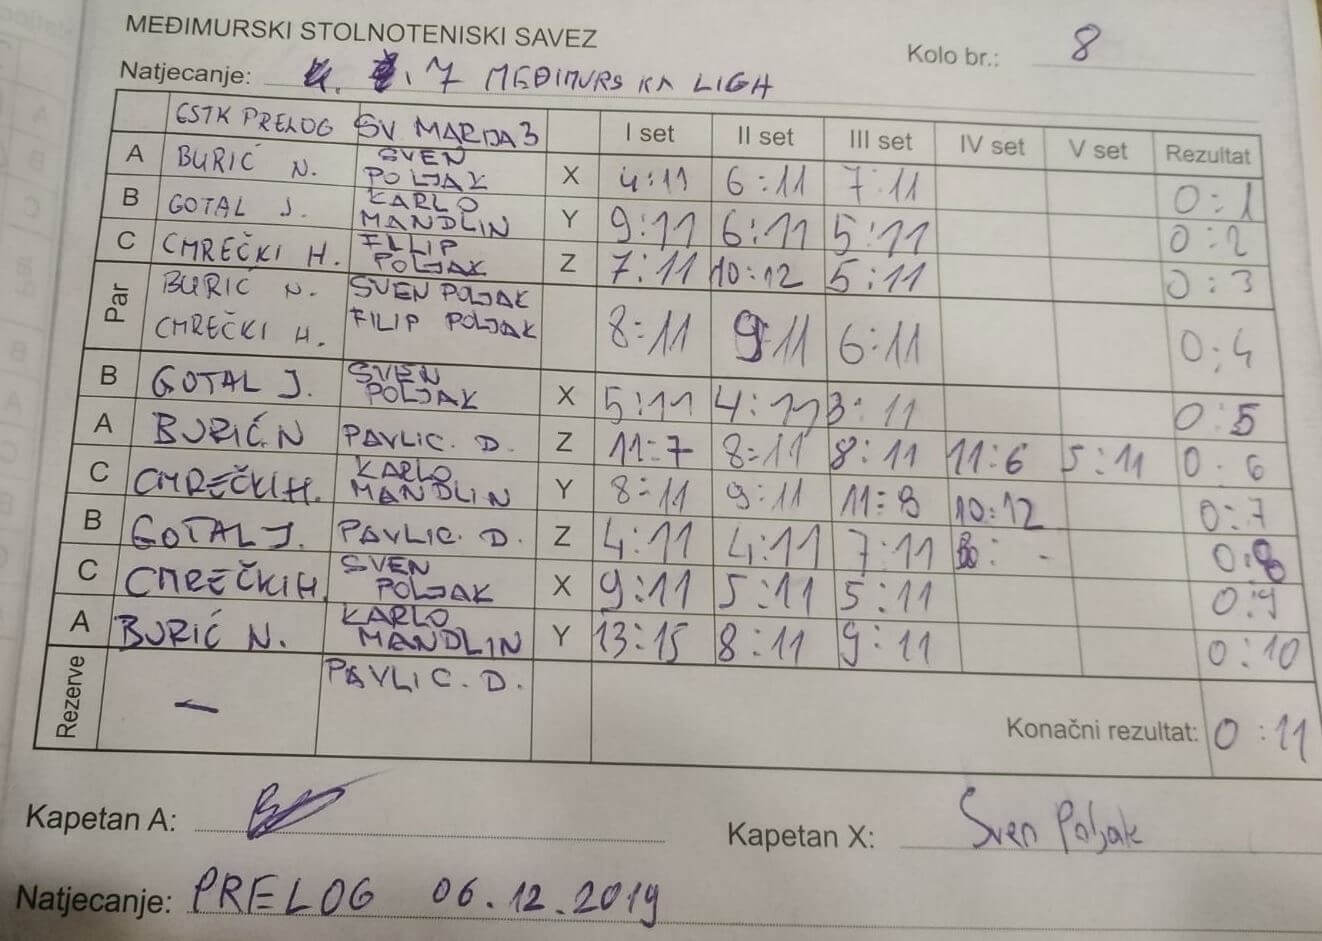 MEĐIMURSKI STOLNOTENISKI SAVEZ
Kolo br.: 8
Natjecanje: 7 MEĐIMURSKA LIGA
GSTK PRELOG SV MARIJA 3 I set II set III set IV set V set Rezultat
A BURIĆ N. SVEN POLJAK X 4:11 6:11 7:11 0:1
B GOTAL J. KARLO MANDLIN Y 9:11 6:11 5:11 0:2
C CMREČKI H. FILIP POLJAK Z 7:11 10:12 5:11 0:3
Par BURIĆ N. SVEN POLJAK
CMREČKI H. FILIP POLJAK 8:11 9:11 6:11 0:4
B GOTAL J. SVEN POLJAK X 5:11 4:11 3:11 0:5
A BURIĆ N PAVLIC. D. Z 11:7 8:11 8:11 11:6 5:11 0:6
C CMREČKI H. KARLO MANDLIN Y 8:11 9:11 11:9 10:12 0:7
B GOTAL J. PAVLIC. D. Z 4:11 4:11 7:11 0:8
C CMREČKI H. SVEN POLJAK X 9:11 5:11 5:11 0:9
A BURIĆ N. KARLO MANDLIN Y 13:15 8:11 9:11 0:10
Rezerve – PAVLIC. D.
Konačni rezultat: 0:11
Kapetan A:
Kapetan X: Sven Poljak
Natjecanje: PRELOG 06.12.2019